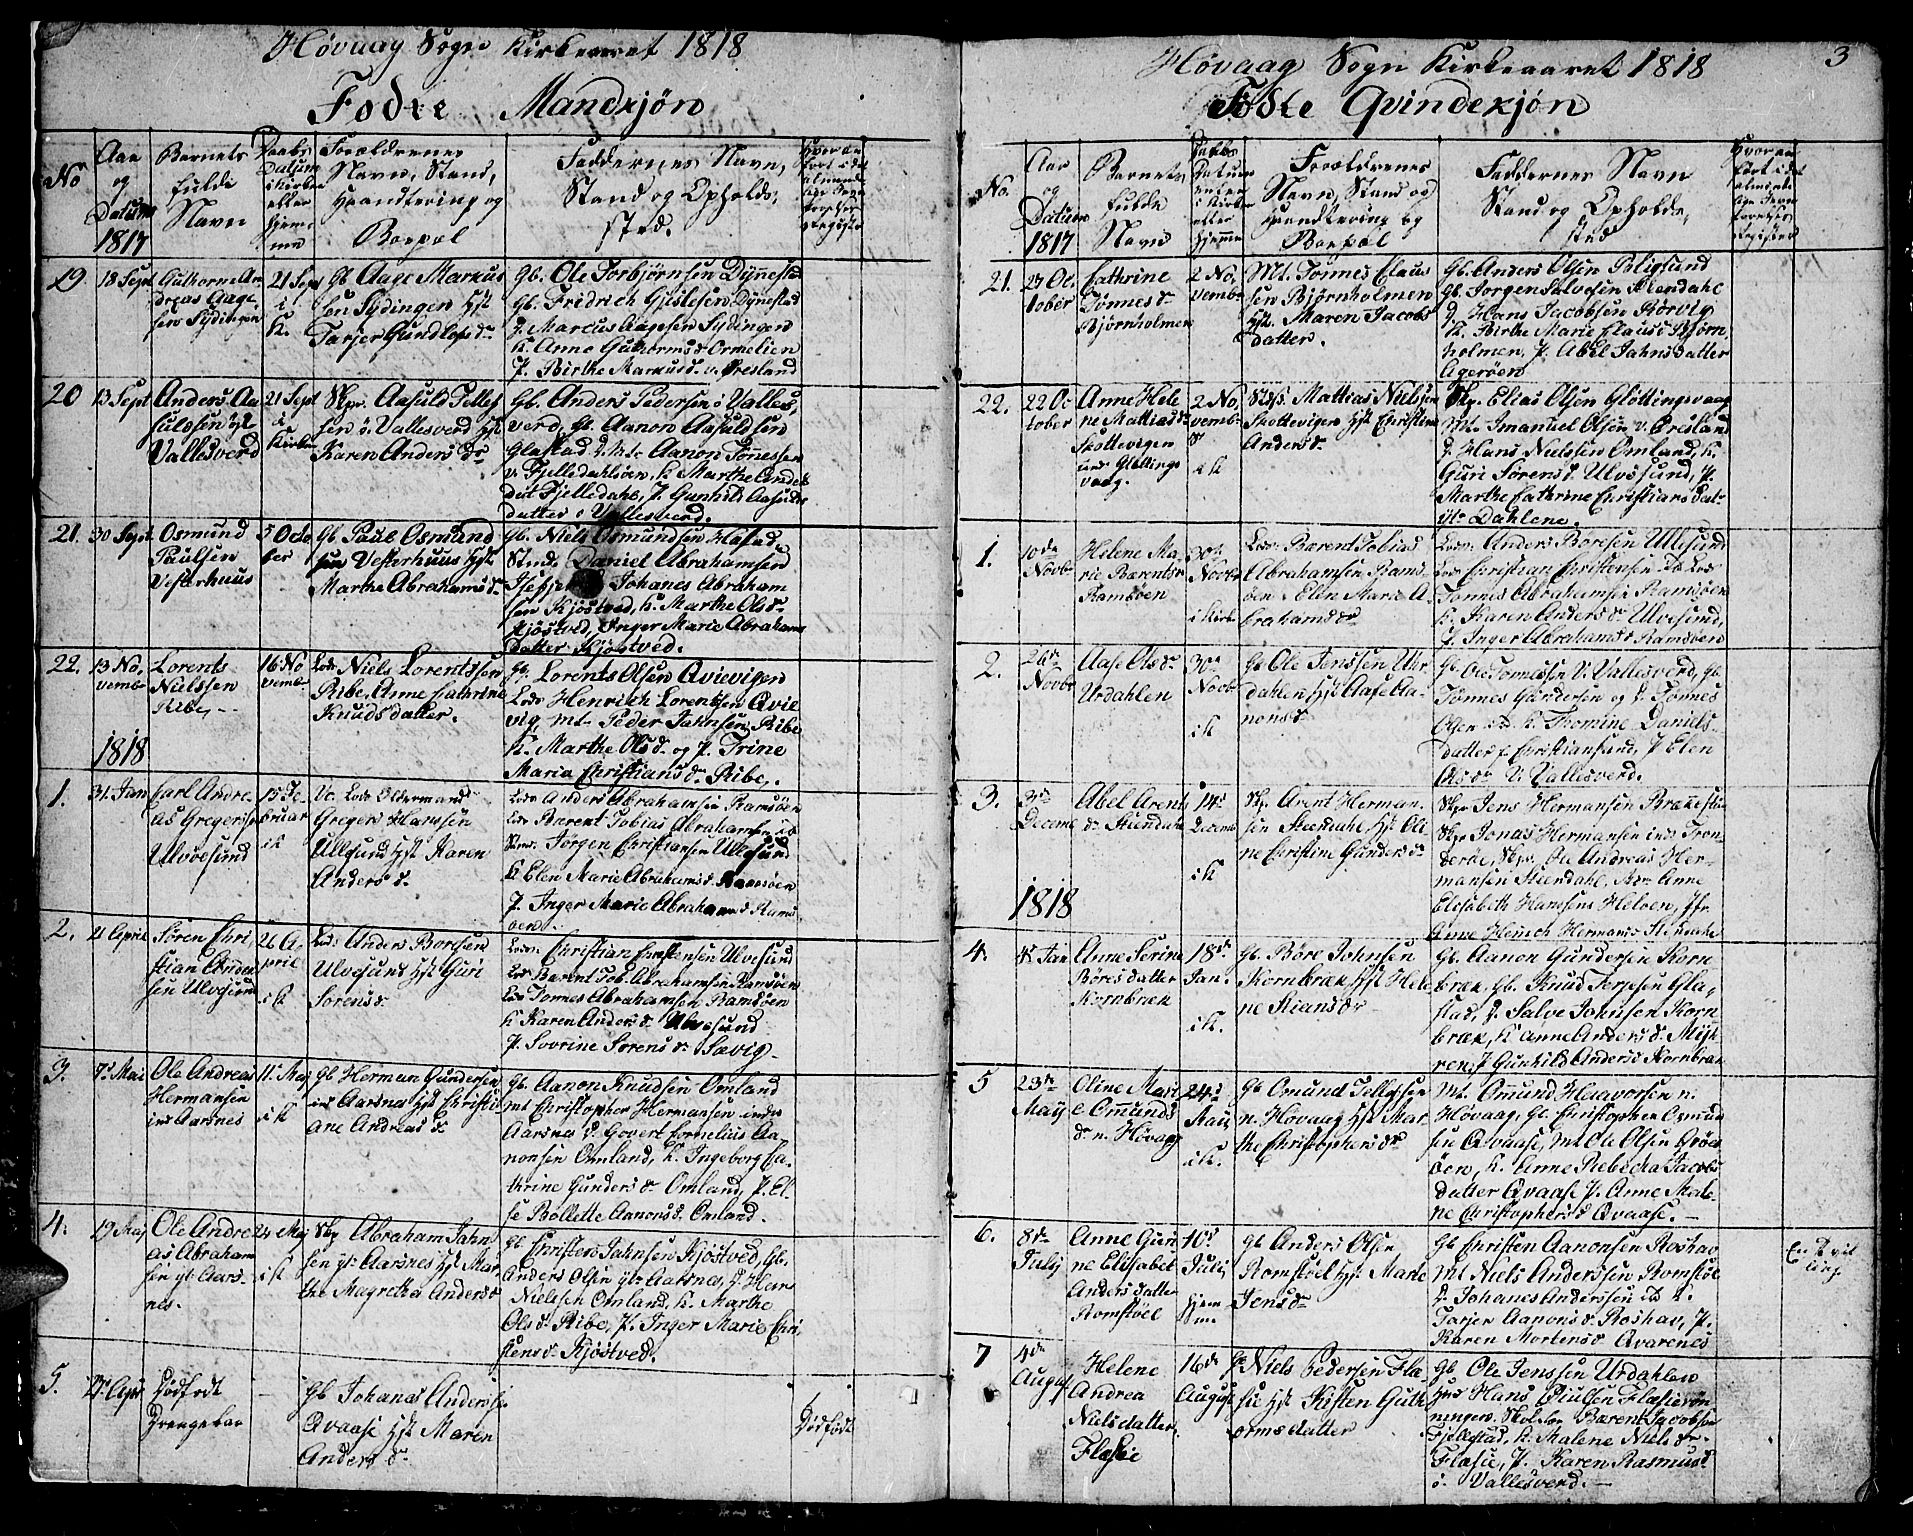 Høvaag Sogn Kirkeaaret 1818
Fødte Mandkjøn
No
Aar
og
Datum
1817
Barnets
fulde
Navn
Daabs
Datum
i Kirke
eller
hjem-
me
Forældrenes
Navn, Stand,
Haandtering og
Boepæl
Faddernes Navn,
Stand og Opholds,
sted.
19.
18 Sept
Guthorm An-
dreas Aage-
sen Sydingen
21 Sept
i
K.
Gb. Aage Markus
sen Sydingen Hst
Tarjer Gundlefsdr
Gb. Ole Torbjørnsen Dynnestad
Gb. Fridrich Gislesen Dynestad
J. Marcus Aagesen Sydingen
K. Anne Guthormsd. Ormelien
P. Birthe Markusd. v. Øresland
20
13 Sept
Anders Aa-
suldsen
Vallesverd
21 Sept
i
Kirke
Skpr. Aasuld Tellef
sen ø. Vallesverd Hst
Karen Andersdr
Gb. Anders Pedersen ø Valles,
verd, Gb. Aanon Aasuldsen
Glastad J. Mt. Aanon Tønnessen
v. Fjelledahlsøen, K. Marthe Anders
dat Fjelledahl, P. Gunhild Aasulds
datter ø Vallesverd.
21.
30 Sept
Osmund
Paulsen
Vesterhuus
5 Octo
ber
Gb Paul Osmund
sen Vesterhuus Hst
Marthe Abrahamsd.
Gb. Niels Osmundsen
Daniel Abrahamsen
Johanes Abraham
sen Kjøstved, K. Marthe Olsdr
Kjøstved, Inger Marie Abrahams
datter Kjøstved.
22.
13 No
vembr
Lorents
Nielssen
Ribe
16 No
vembr
Lods Niels Lorentssen
Ribe, Anne Cathrine
Knudsdatter.
Gb. Lorents Olsen Qvievigen
Lods Henrich Lorentsen Qvie
vig, Mt. Peder Jahnsen Ribe
K. Marthe Olsdr og P. Trine
Maria Christiansdr Ribe,
1818
1.
31. Jan
Carl Andre-
as Gregersen
Ulvøesund
15 Fe
bruar
i K
Vc. Lods Oldermand
Gregers Hanssen
Ullesund Hst Karen
Andersd.
Lods Anders Abrahamsen Ramsøen
Lods Barent Tobias Abrahamsen ib
Jørgen Christiansen Ullesund
K Elen Marie Abrahamsd. Ramsøen
P. Inger Marie Abrahamsd Rams
øen
2.
21 April
Søren Chri
stian Ander
sen Ulvesund
26 A-
pril
i K
Lods Anders Boresen
Ulvesund Hst Guri
Sorensdr
Lods Christian Christensen Ulvesund
Lods Barent Tob. Abrahamsen Ramsøen
Lods Tønnes Abrahamsen Ramsøen
K Karen Andersdr Ulvesund
P. Sovrine Sorensdr Sævig
3.
7d Mai
Ole Andreas
Hermansen
indr Aarsnes
11t Maj
i K
Gb Herman Gundersen
indr Aarsnes Hst Christi-
ane Andreasdr
Gb. Aanon Knudsen Omland
Mt Christopher Hermansen indre
Aarsnes J. Govert Cornelius Aa-
nonsen Omland, K. Ingeborg Ca-
thrine Gundersdr Omland, P. El-
se Bollette Aanonsd. Omland.
4.
19 Maj
Ole Andre
as Abraham
sen yt. Aars-
nes.
24 Maj
i K
Skpr Abraham Jahn
sen yt. Aarsnes Hst Mar
the Magretha Andersdr
Gb Christen Jahnsen Kjøstved, Gb.
Anders Olsen yt. Aarsnes, J. Hans
Nielssen Omland, K. Marthe
Olsdr Ribe, P. Inger Marie Chri
stensdr Kjøstved.
5.
Dødfødt
Drengebarn
Gb Johanes Anders
Qvaase Hst Maren
Andersdr
Dødfødt
Høvaag Sogn Kirkeaaret 1818
3
Fødte Qvindekjøn
No.
Aar
og
Datum
1817
Barnets
fulde
Navn
Daabs
Datum
i Kirke
eller
hjemme
Forældrenes
Navn, Stand og
Haandtering og
Boepæl
Faddernes Navn
Stand og Opholds,
sted
21.
27 Oc
tober
Cathrine
Tønnesdr
Bjørnholmen
2 No
vembr
Mt. Tønnes Claus
sen Bjørnholmen
Hst. Maren Jacobs
datter.
Gb. Anders Olsen Poligsund
Gb. Jorgen Salvesen Steendahl
J. Hans Jacobsen Rorvig
K. Birthe Marie Clausd Bjørn
holmen, P. Abel Jahnsdatter
Agerøen
22.
22 Oc
tober
Anne Hele
ne Mathiasdr
Skottevigen
indr Gløttings
vaag.
2 No
vembr
i K
Mattias Nielsen
Skottevigen Hst Christine
Andersdr
Skp. Elias Olsen Gløttingsvaag
Mt. Imanuel Olsen v. Øresland
J. Hans Nielssen Omland, K.
Guri Sørensd. Ulvesund, P.
Marthe Cathrine Christians dat
Dahlene.
1.
10de
Novbr
Helene Ma-
rie Bærentsdr
Ramsøen
30te
Novbr
i Kirke
Lods Bærent Tobias
Abrahamsen Rams-
øen Elen Marie A-
brahamsdr
Lods. Anders Boresen Ullesund
Lods Christian Christensen ib. Lods
Tønnes Abrahamsen Ramsøen
K. Karen Andersdr Ulvesund,
P. Inger Abrahamsdr Ramsøen
2.
26de
Novbr
Aase Olsdr
Urdahlen
30te
Novbr
i K
Gb Ole Jenssen Uhr
dahlen Hst Aase Aa-
nonsd
Gb Ole Tønnessen V. Vallesverd, Gb
Tønnes Gundersen og J. Tønnes
Olsen ib. K. Thomine Daniels
datter f. Christiansund, P Elen
Olsdr V. Vallesverd.
3.
3de
Decembr
Abel Arents
dr Steendahl
14d
Decembr
i K
Skp. Arent Herman-
sen Steendahl Hst Oli
ne Christine Gundersdr
Skpr Jens Hermansen Brænnestie
Skpr Jonas Hermansen indr Tron
derøe, Skpr. Ole Andreas Her-
mansen Steendahl, Mdr Anne
Elisabeth Hansens Helven, Jfr.
Anne Henich Hermansd Steendahl
1818
4.
Jan
Anne Serine
Børesdatter
Kornbræk
18de
Jan.
i K.
Gb. Børe Johnsen
Kornbræk Hst Hele
ne Stiensdr
Gb. Aanon Gundersen Korn
bræk, Gb. Knud Terjesen Gla-
stad, J. Salve Johnsen Korn-
bræk, K Anne Andersd. Myh-
ren, P Gunhild Andersd Kornbræk
5
23de
May
Oline Mari
e Omunds
dr n. Høvaag
24d
Maij
i K.
Gb Omund Tellefsen
n. Høvaag Hst Mar-
the Christophersdr
Mt. Omund Haavorsen n.
Høvaag, Gb Christopher Osmund
sen Qvaase, Mt Ole Olsen Brøe
øen, K. Anne Rebecha Jacobs
datter Qvaase P. Anne Male-
ne Christophersd Qvaase.
6.
8de
Julj
Anne Guri
ne Elisabet
Andersdatter
Romstøel
10d
Julj
hjem
me
Gb Anders Olsen
Romstøel Hst Marie
Jensdr
Gb Christen Aanonsen Roshav
Mt Niels Anderssen Romstøl
J. Johanes Anderssen ib K.
Tarjer Aanonsd. Roshav, P.
Karen Mortensd. Qvarenes
En Tvil
ling
7
4de
August
Helene
Andrea
Nielsdatter
Flasie
16de
August
Gb Niels Pedersen Fla-
sie Hst Kisten Guth
ormsdatter
Gb Ole Jenssen Urdahlen
Hans Flasierøn
ningen. Skolelær Bærent Jacobsen
Fjellestad, K. Malene Nielsdr.
Flasie, P. Karen Rasmusd
ø. Vallesverd.